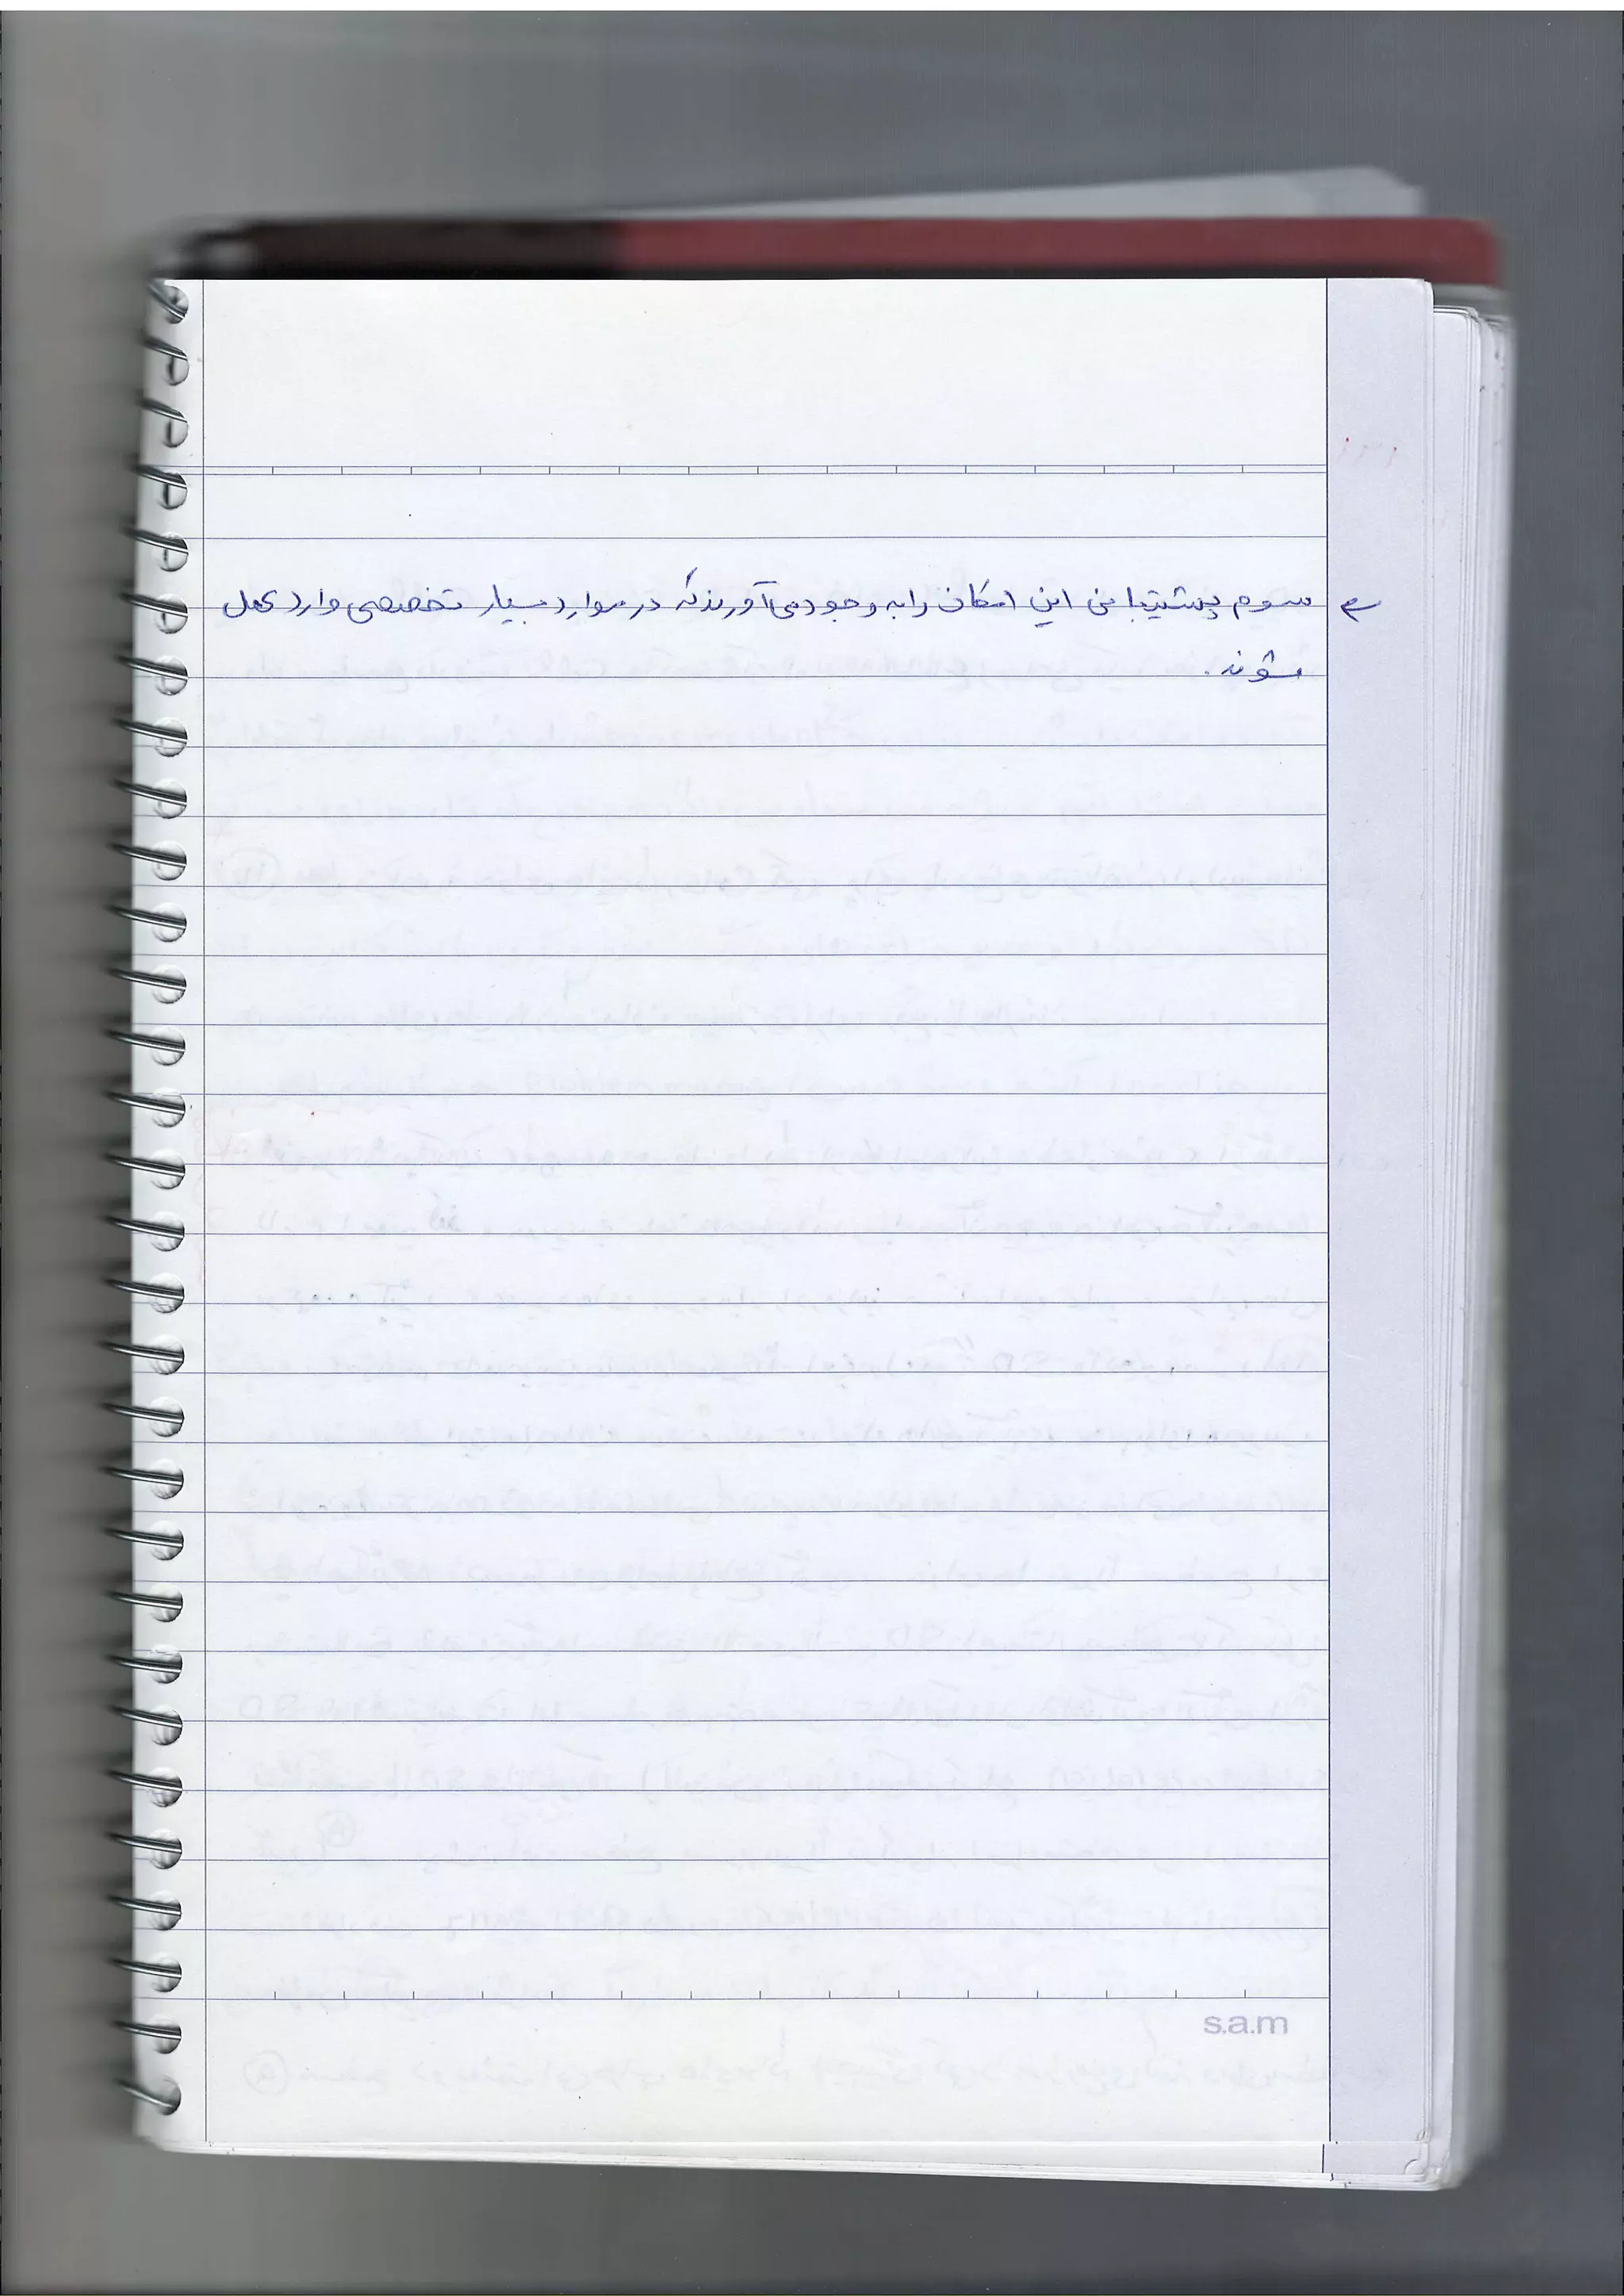 سوم پشتیبانی این امکان را به وجود می‌آورند که در موارد بسیار تخصصی وارد عمل
شوند.
s.a.m